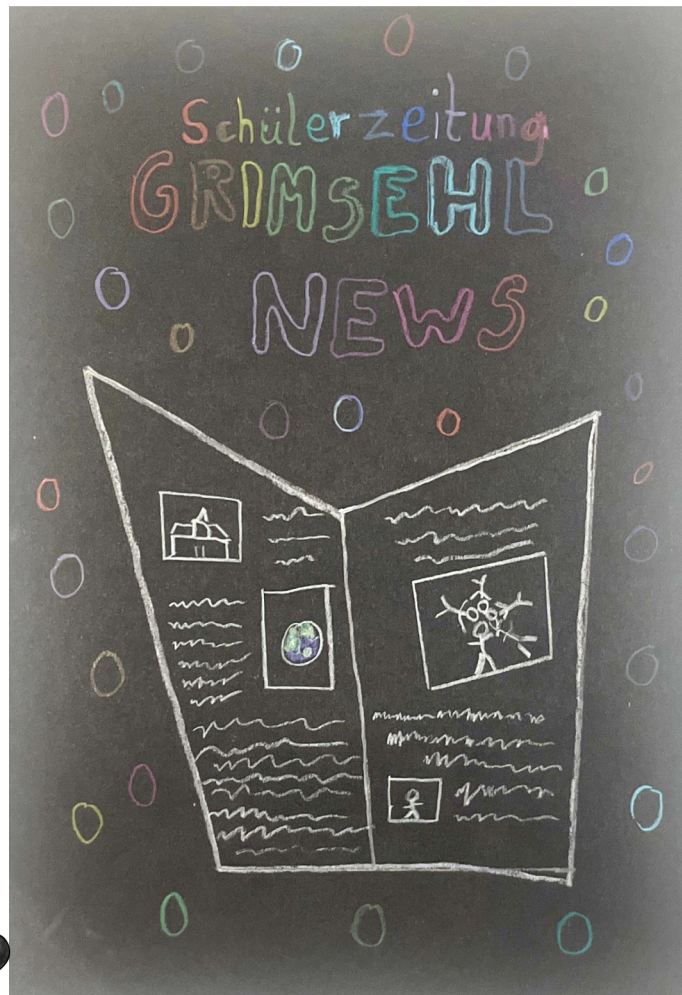 Schülerzeitung
GRIMSEHL
NEWS